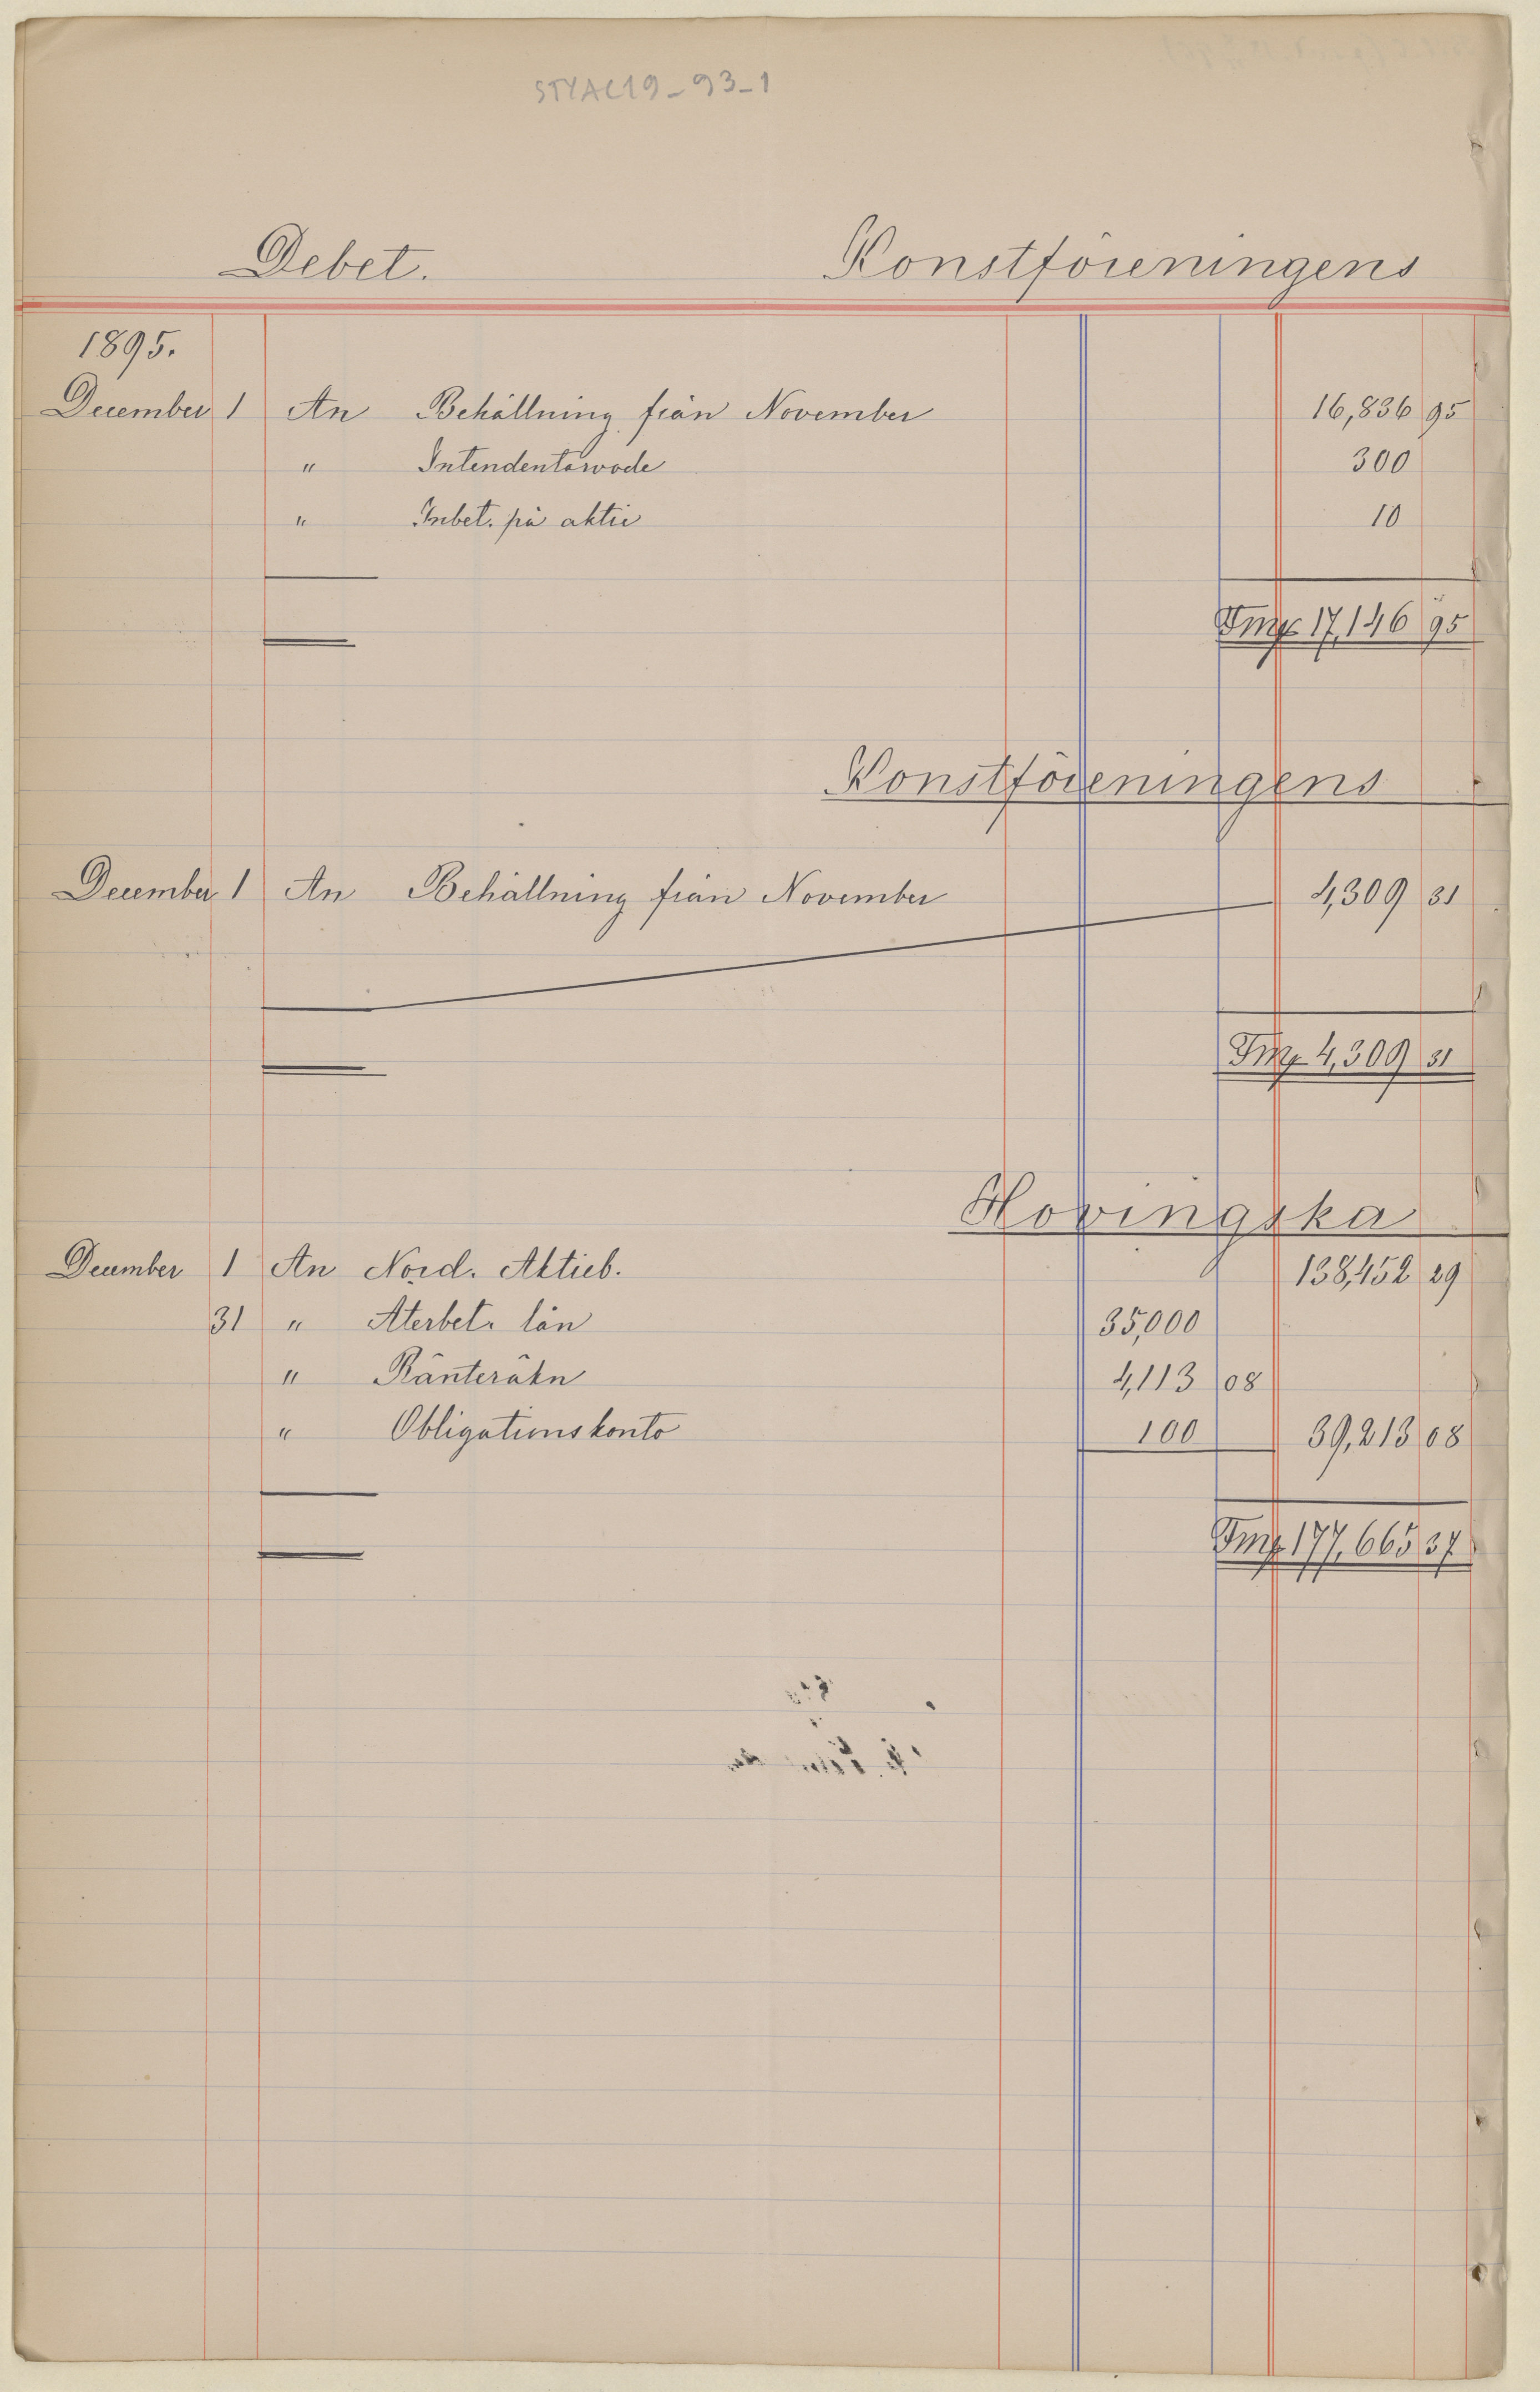 STYAC19_93_1
Debet. Konstföreningens
1895.
December 1 An Behållning från November 16,836 95
" Intendentsarvode 300
" Inbet. på aktie 10
Fmk 17,146 95
Konstföreningens
December 1 An Behållning från November 4,309 31
Fmk 4,309 31
Hovingska
December 1 An Nord. Aktieb. 138,452 29
31 " Återbet. lån 35,000
" Ränteräkn 4,113 08
" Obligationskonto 100 39,213 08
Fmk 177,665 37